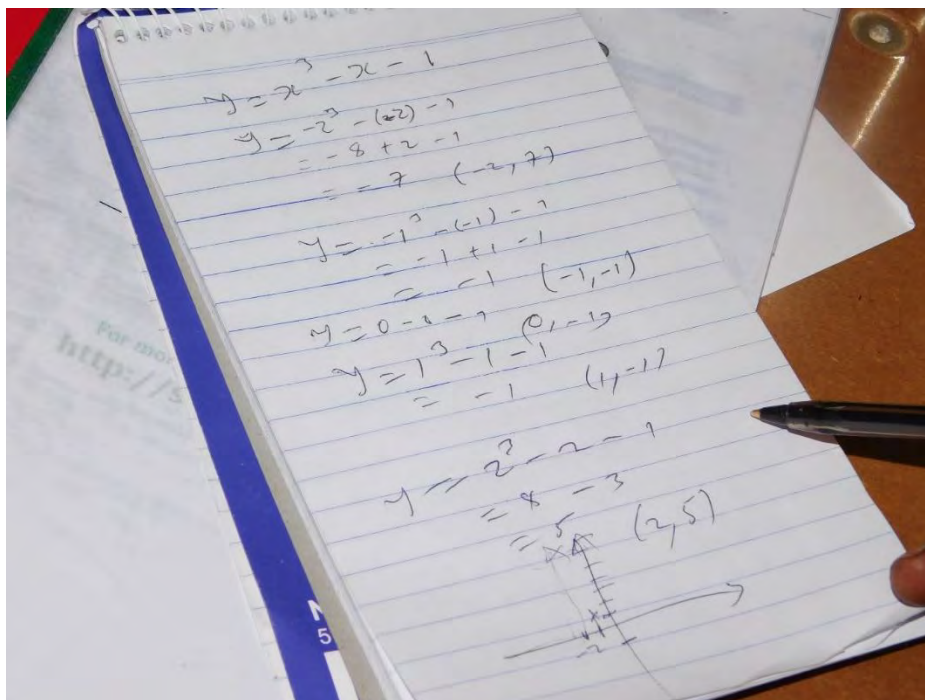 y = x³ - x - 1
y = -2³ - (-2) - 1
= -8 + 2 - 1
= -7 (-2, 7)
y = -1³ - (-1) - 1
= -1 + 1 - 1
= -1 (-1, -1)
y = 0 - 0 - 1 (0, -1)
y = 1³ - 1 - 1
= -1 (1, -1)
y = 2³ - 2 - 1
= 8 - 3
= 5 (2, 5)
-2
For mor
http://s
N
5